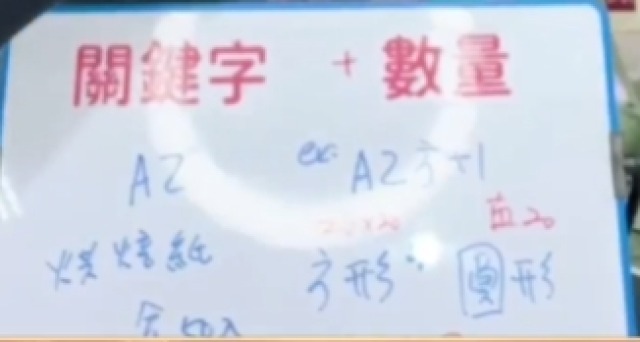 關鍵字 + 數量
A2 ex. A2方+1
20x20 直20
烘焙紙 方形 圓形